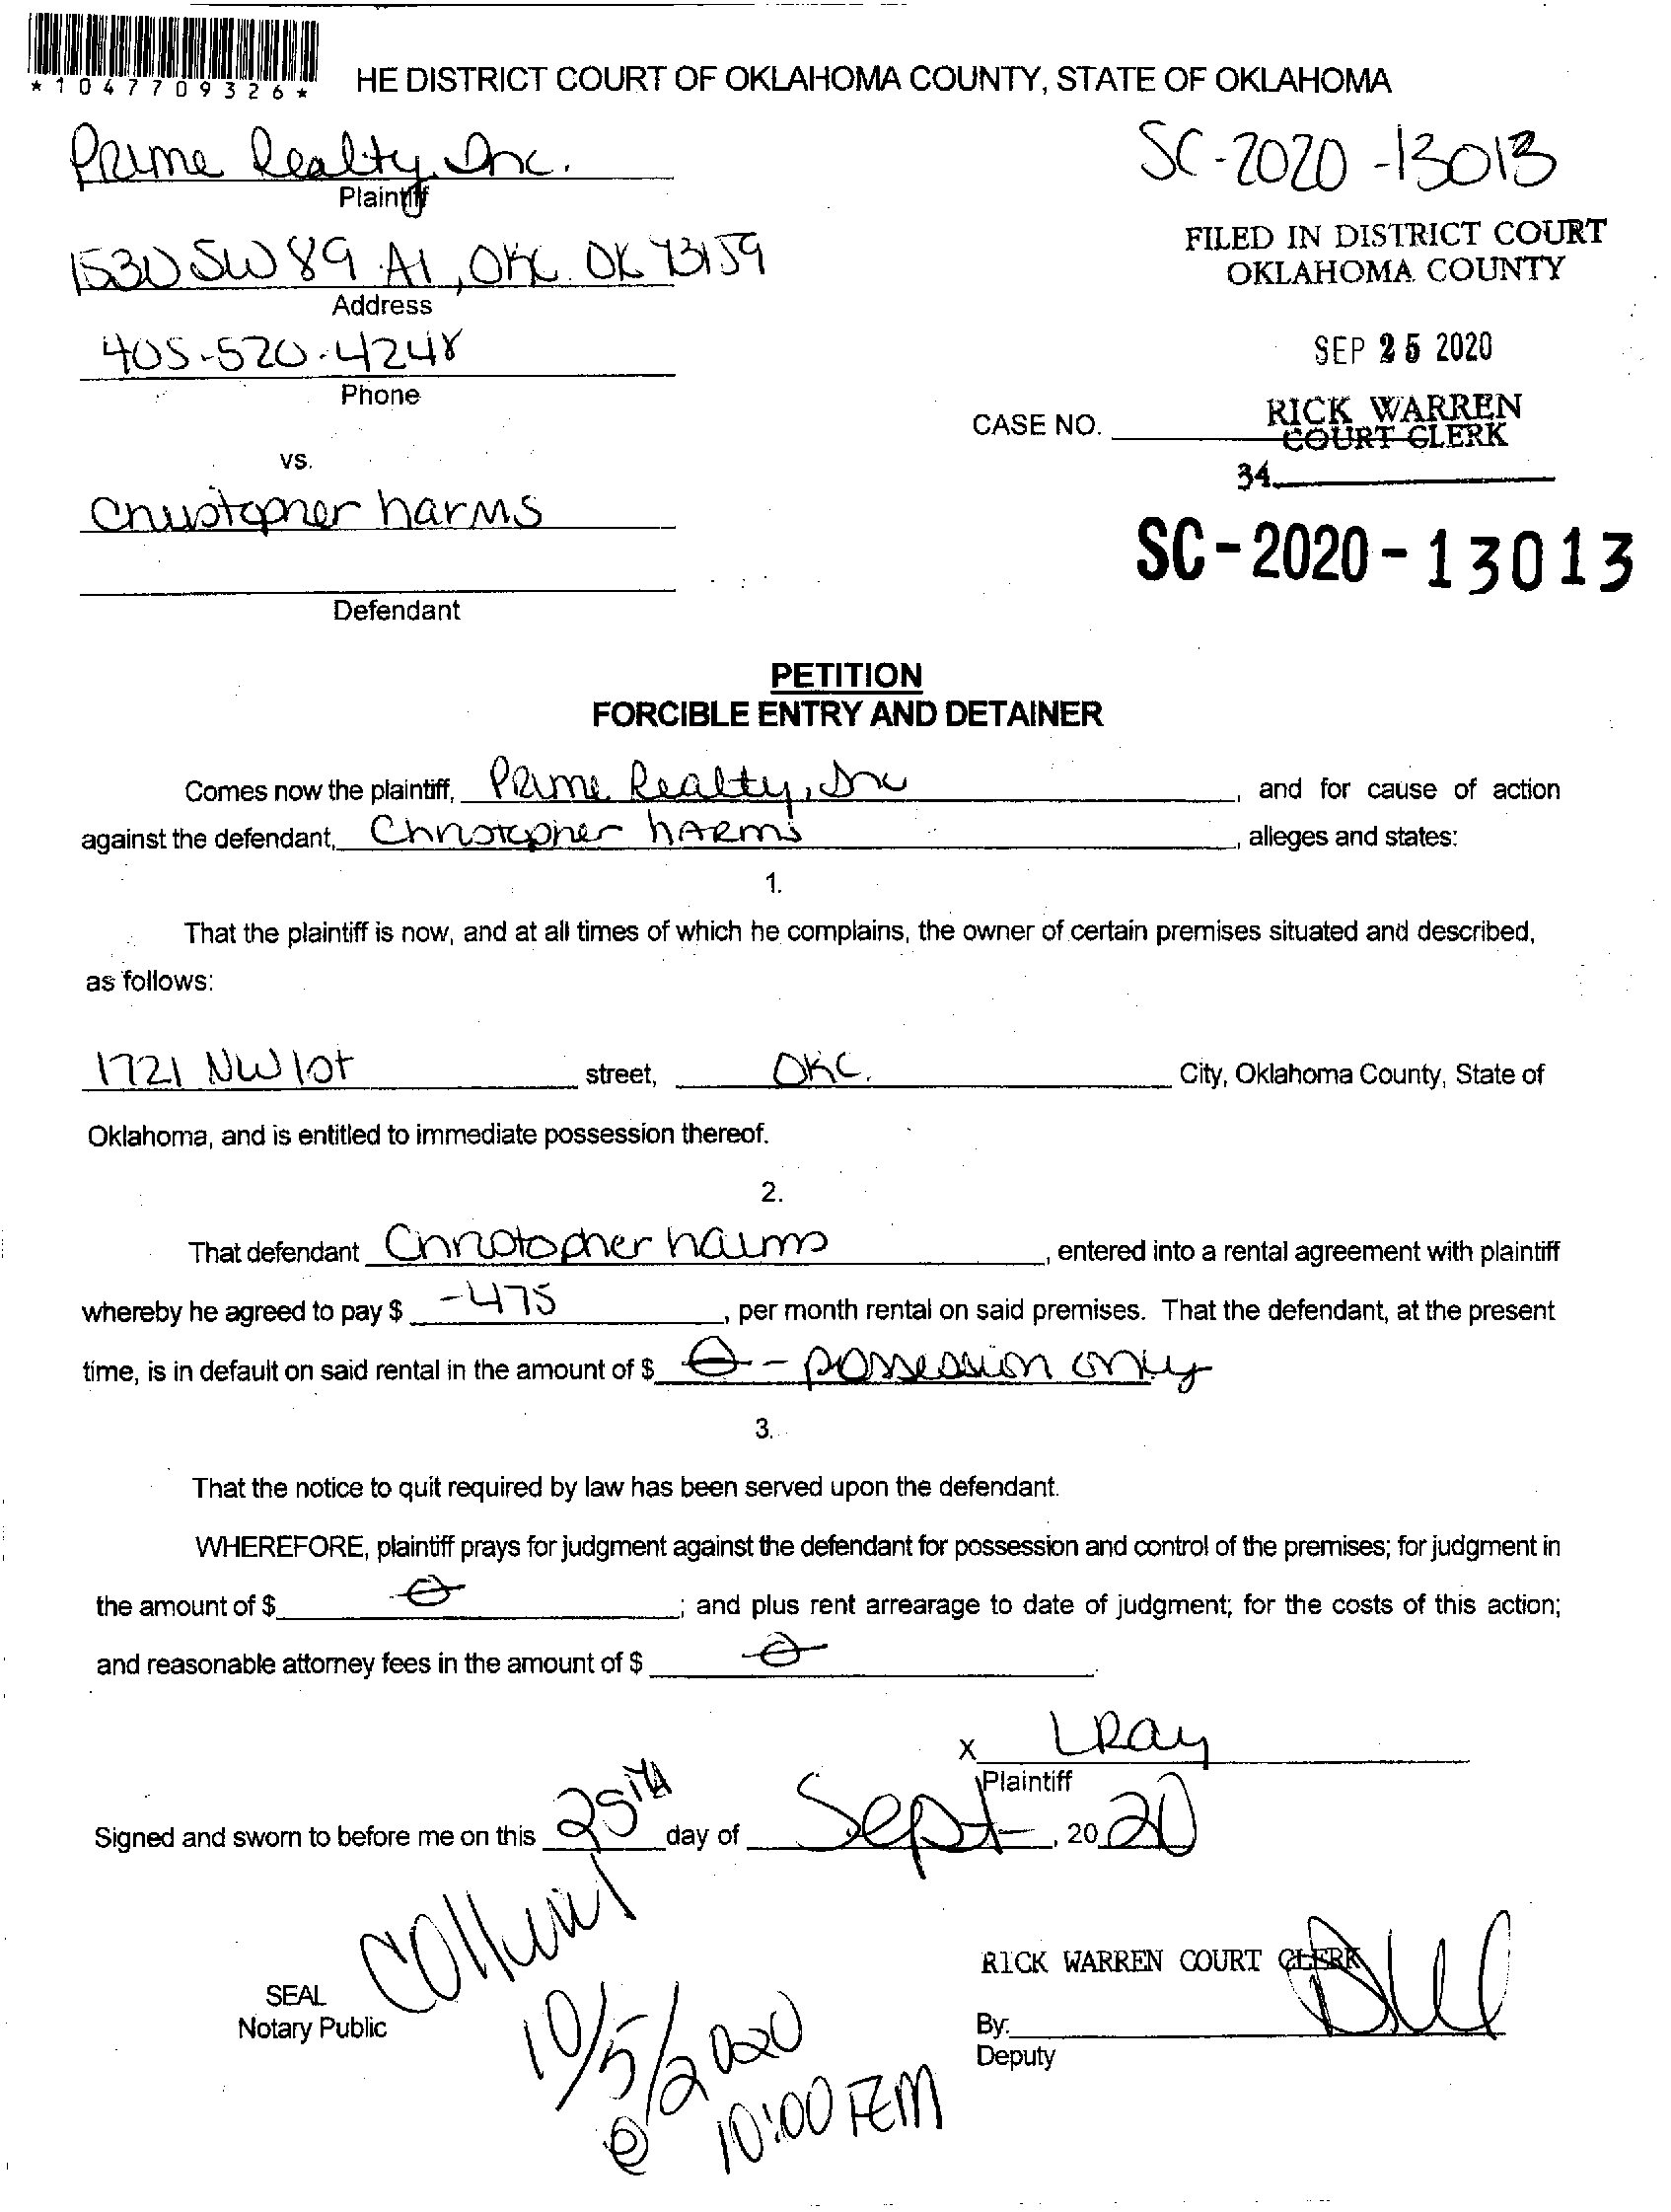 *1047709326*
HE DISTRICT COURT OF OKLAHOMA COUNTY, STATE OF OKLAHOMA
Prime Realty, Inc.
SC-2020-13013
Plaintiff
1530 SW 89 A1, OKC. OK 73159
FILED IN DISTRICT COURT
OKLAHOMA COUNTY
Address
405-520-4248
SEP 25 2020
Phone
CASE NO.
RICK WARREN
COURT CLERK
vs.
34
Christopher harms
SC-2020-13013
Defendant
PETITION
FORCIBLE ENTRY AND DETAINER
Comes now the plaintiff, Prime Realty, Inc, and for cause of action
against the defendant, Christopher harms, alleges and states:
1.
That the plaintiff is now, and at all times of which he complains, the owner of certain premises situated and described,
as follows:
1721 NW 10t street, OKC. City, Oklahoma County, State of
Oklahoma, and is entitled to immediate possession thereof.
2.
That defendant Christopher harms, entered into a rental agreement with plaintiff
whereby he agreed to pay $ -475, per month rental on said premises. That the defendant, at the present
time, is in default on said rental in the amount of $ 0 - possession only
3.
That the notice to quit required by law has been served upon the defendant.
WHEREFORE, plaintiff prays for judgment against the defendant for possession and control of the premises; for judgment in
the amount of $ 0; and plus rent arrearage to date of judgment; for the costs of this action;
and reasonable attorney fees in the amount of $ 0.
X LRay
Plaintiff
Signed and sworn to before me on this 25th day of Sept, 2020
RICK WARREN COURT CLERK
SEAL
Notary Public
By:
Deputy
10/5/2020
@ 10:00